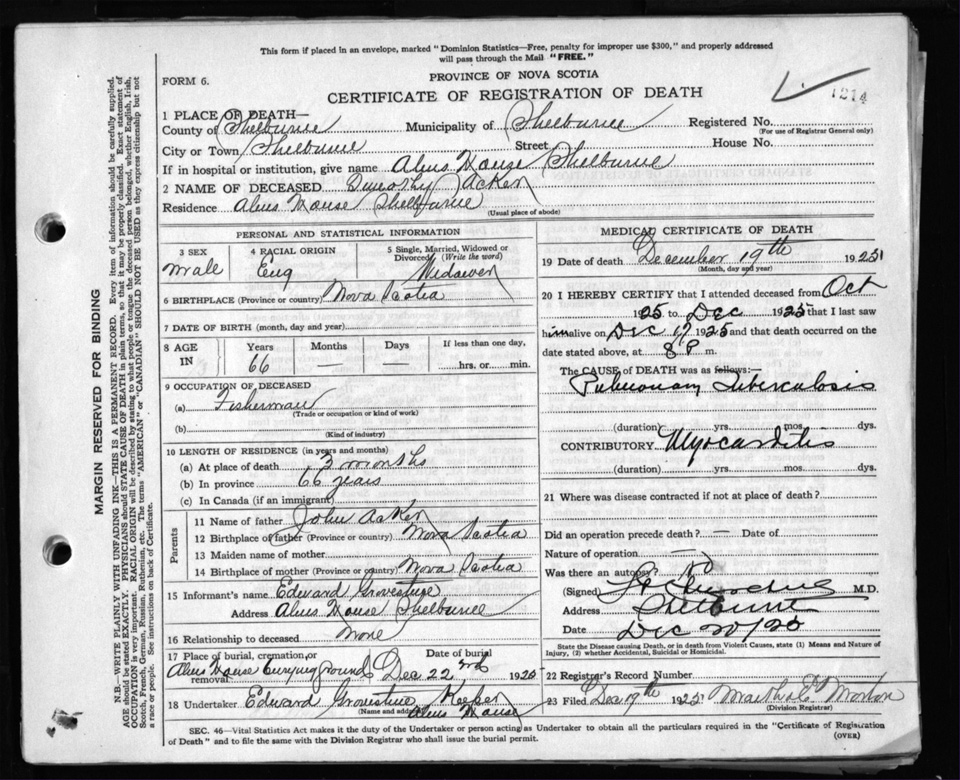 This form if placed in an envelope, marked "Dominion Statistics—Free, penalty for improper use $300," and properly addressed
will pass through the Mail "FREE."
FORM 6.
PROVINCE OF NOVA SCOTIA
CERTIFICATE OF REGISTRATION OF DEATH
1214
MARGIN RESERVED FOR BINDING
N.B.—WRITE PLAINLY WITH UNFADING INK—THIS IS A PERMANENT RECORD. Every item of information should be carefully supplied.
AGE should be stated EXACTLY. PHYSICIANS should STATE CAUSE OF DEATH in plain terms, so that it may be properly classified. Exact statement of
OCCUPATION is very important. RACIAL ORIGIN will be described by stating to what people or tongue the deceased person belonged, whether English, Irish,
Scotch, French, German, Russian, Ruthenian, etc. The terms "AMERICAN" or "CANADIAN" SHOULD NOT BE USED as they express citizenship but not
a race or people. See instructions on back of Certificate.
1 PLACE OF DEATH—
County of Shelburne Municipality of Shelburne Registered No.
(For use of Registrar General only)
City or Town Shelburne Street House No.
If in hospital or institution, give name Alms House Shelburne
2 NAME OF DECEASED Timothy Acker
Residence Alms House Shelburne
(Usual place of abode)
PERSONAL AND STATISTICAL INFORMATION
3 SEX
male
4 RACIAL ORIGIN
Eng
5 Single, Married, Widowed or
Divorced (Write the word)
Widower
6 BIRTHPLACE (Province or country) Nova Scotia
7 DATE OF BIRTH (month, day and year)
8 AGE IN Years Months Days If less than one day,
66 — — hrs. or min.
9 OCCUPATION OF DECEASED
(a) Fisherman
(Trade or occupation or kind of work)
(b)
(Kind of industry)
10 LENGTH OF RESIDENCE (in years and months)
(a) At place of death 3 months
(b) In province 66 years
(c) In Canada (if an immigrant)
Parents
11 Name of father John Acker
12 Birthplace of father (Province or country) Nova Scotia
13 Maiden name of mother
14 Birthplace of mother (Province or country) Nova Scotia
15 Informant's name Edward Grovestine
Address Alms House Shelburne
16 Relationship to deceased None
17 Place of burial, cremation, or removal Date of burial
Alms House burying Ground Dec 22nd 1925
18 Undertaker Edward Grovestine Keeper
(Name and address) Alms House
MEDICAL CERTIFICATE OF DEATH
19 Date of death December 19th 1925
(Month, day and year)
20 I HEREBY CERTIFY that I attended deceased from Oct
1925 to Dec 1925 that I last saw
him alive on Dec 17 1925 and that death occurred on the
date stated above, at 8 P m.
The CAUSE of DEATH was as follows:—
Pulmonary tuberculosis
(duration) yrs. mos. dys.
CONTRIBUTORY Myocarditis
(duration) yrs. mos. dys.
21 Where was disease contracted if not at place of death?
Did an operation precede death? — Date of
Nature of operation —
Was there an autopsy
(Signed) M.D.
Address Shelburne
Date Dec 20/25
State the Disease causing Death, or in death from Violent Causes, state (1) Means and Nature of
Injury, (2) whether Accidental, Suicidal or Homicidal.
22 Registrar's Record Number
23 Filed Dec 19th 1925 Morton
(Division Registrar)
SEC. 46—Vital Statistics Act makes it the duty of the Undertaker or person acting as Undertaker to obtain all the particulars required in the "Certificate of Registration
of Death" and to file the same with the Division Registrar who shall issue the burial permit.
(OVER)